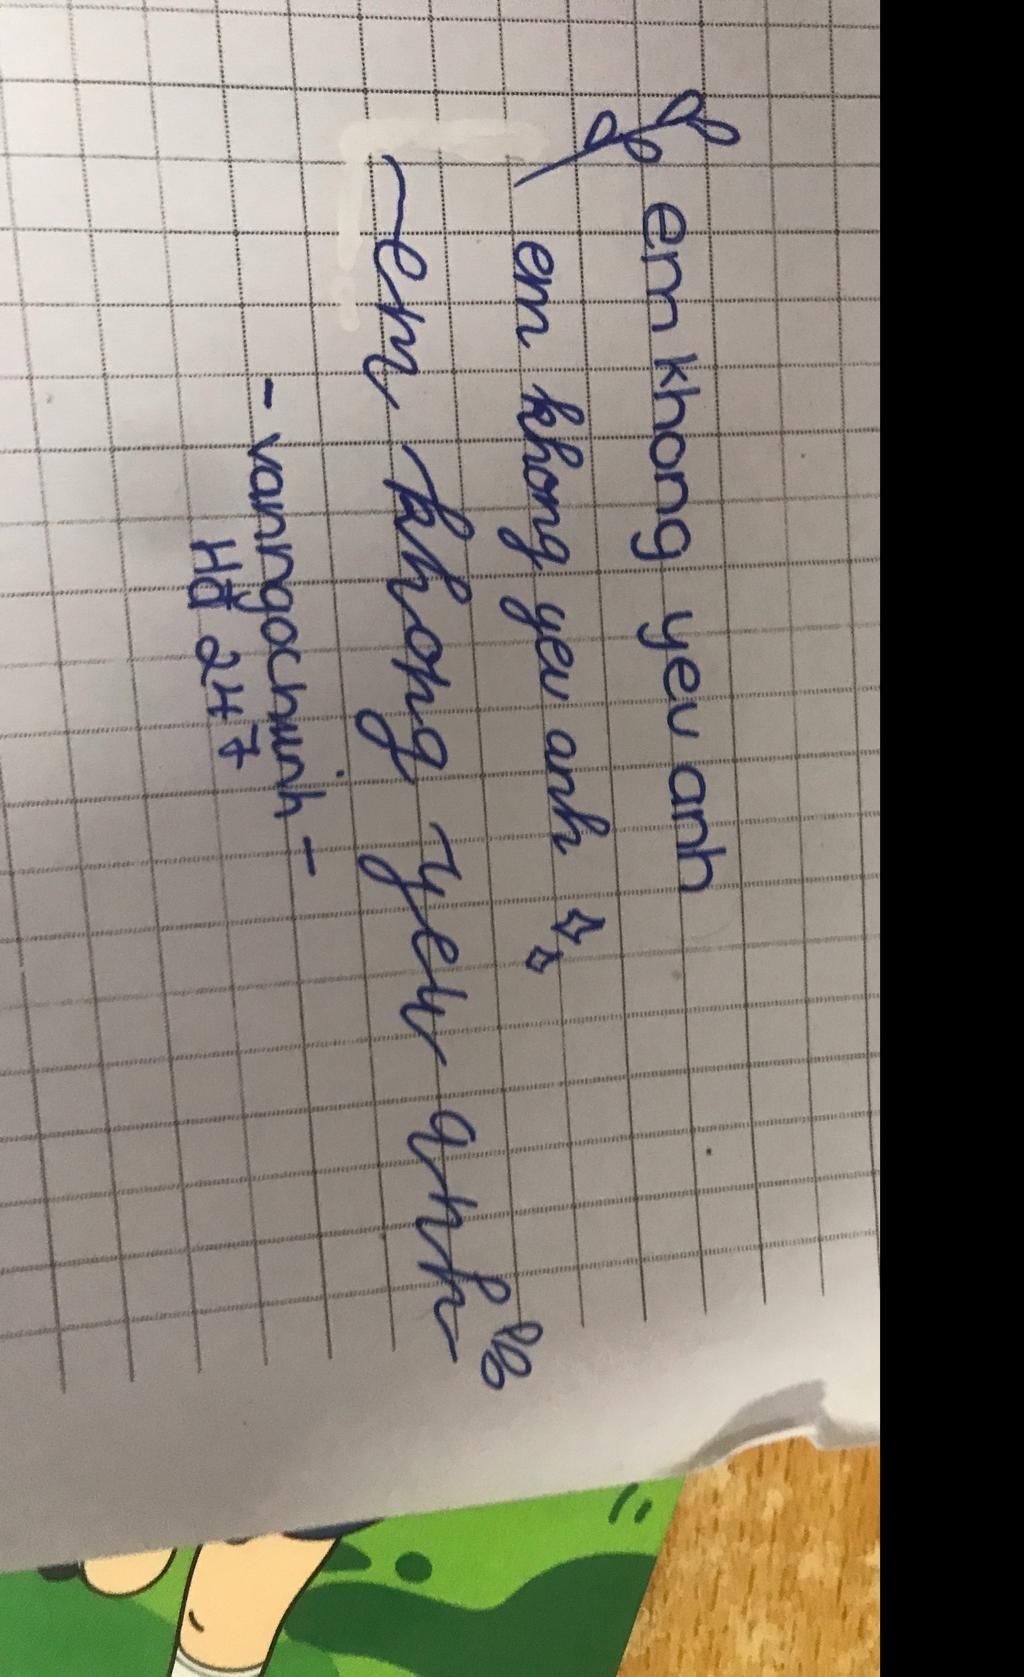 em khong yeu anh
em khong yeu anh
em khong yeu anh
- vanngochunh -
Hđ 247